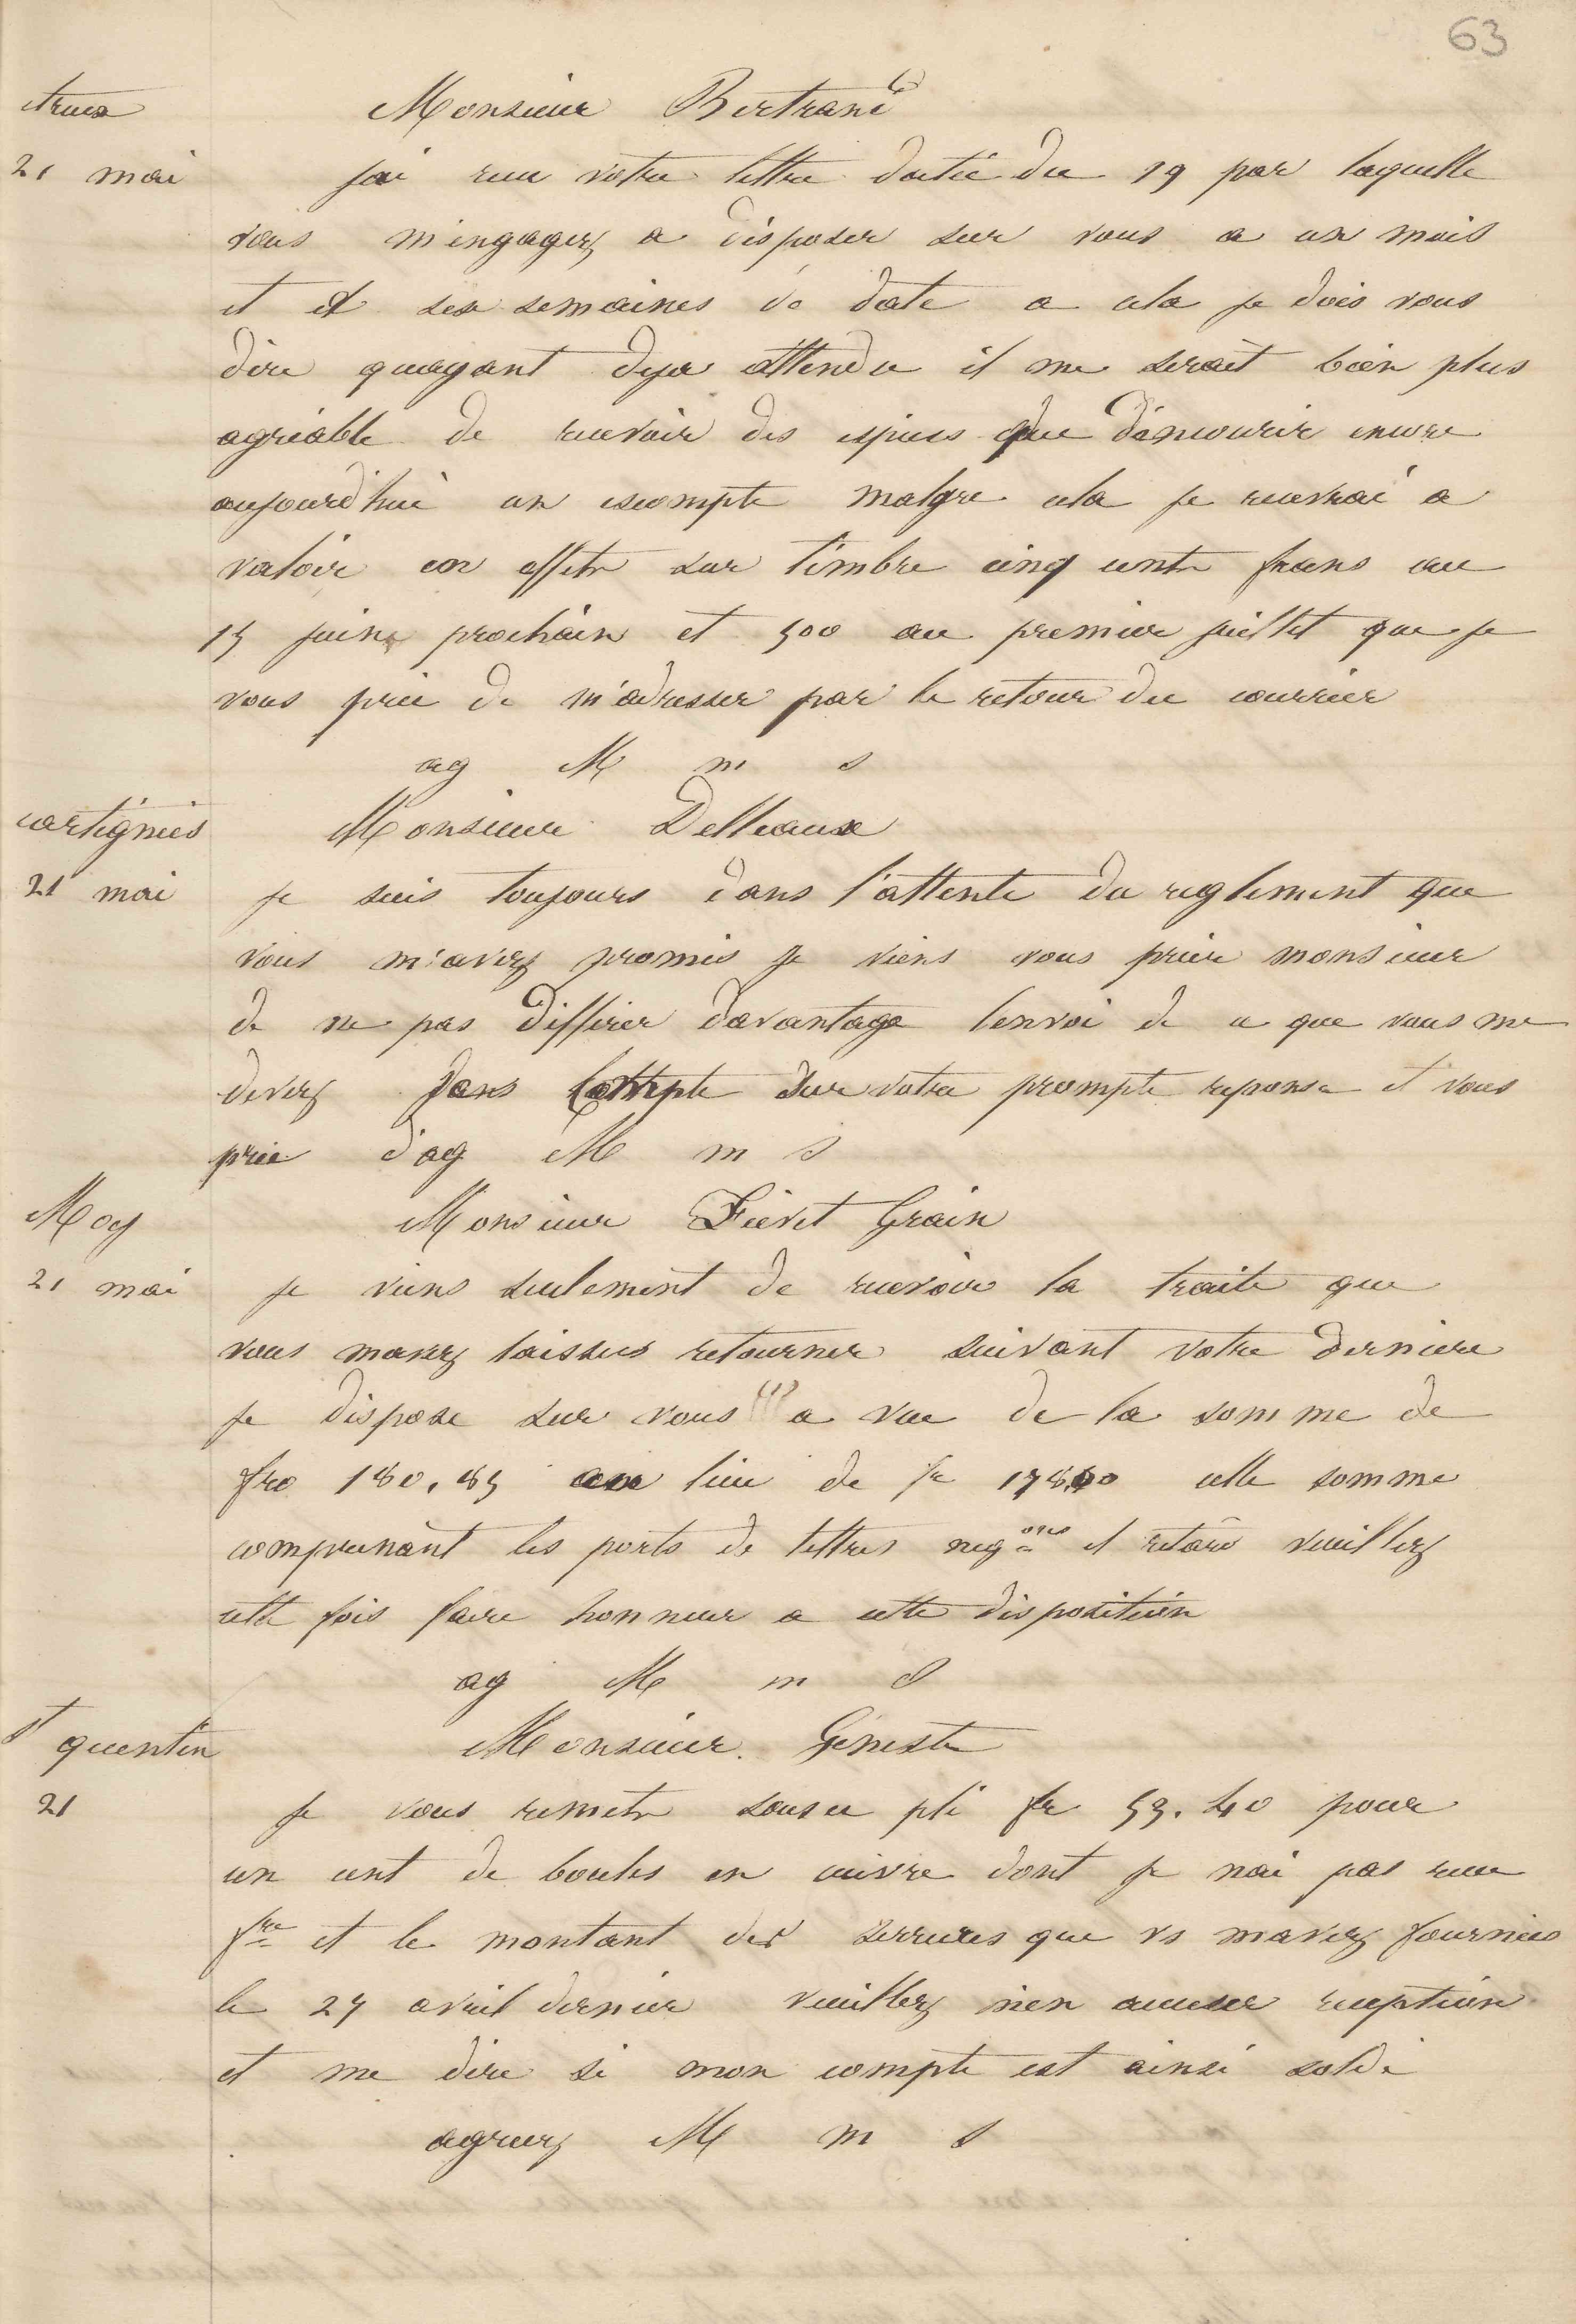 63
etreux Monsieur Bertrand
21 mai jai recu votre lettre datée du 19 par laquelle
vous m'engagez a disposer sur vous a un mois
et et six semaines de date a cela je dois vous
dire quayant deja attendu il me serait bien plus
agréable de recevoir des especes que d'encourir encore
aujourd'hui un escompte malgre cela je recevrai a
valoir en effets sur timbre cinq cents francs au
15 juin prochain et 500 au premier juillet que je
vous prie de m'adresser par le retour du courrier
ag M m s
cartignies Monsieur Delleaux
21 mai je suis toujours dans l'attente du reglement que
vous m'avez promis je viens vous prier monsieur
de ne pas differer davantage lenvoi de ce que vous me
devez dans compte sur votre prompte reponse et vous
prie d'ag M m s
Moy Monsieur Fievet Grain
21 mai je viens seulement de recevoir la traite que
vous mavez laissee retourner suivant votre derniere
je dispose sur vous a vue de la somme de
frs 180,85 au lieu de fr 178,50 cette somme
comprenant les ports de lettres negons et retard veuillez
cette fois faire honneur a cette disposition
ag M m s
St quentin Monsieur Geneste
21 je vous remets sous ce pli fr 59.40 pour
un cent de boules en cuivre dont je nai pas recu
fre et le montant des serrures que vs mavez fournies
le 27 avril dernier veuillez m'en accuser reception
et me dire si mon compte est ainsi soldé
agreez M m s